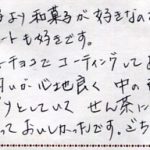 より和菓子が好きなの
ートも好きです。
チョコでコーティングしてあ
心地良く 中の
としていて せん茶に
っておいしかったです。ごち